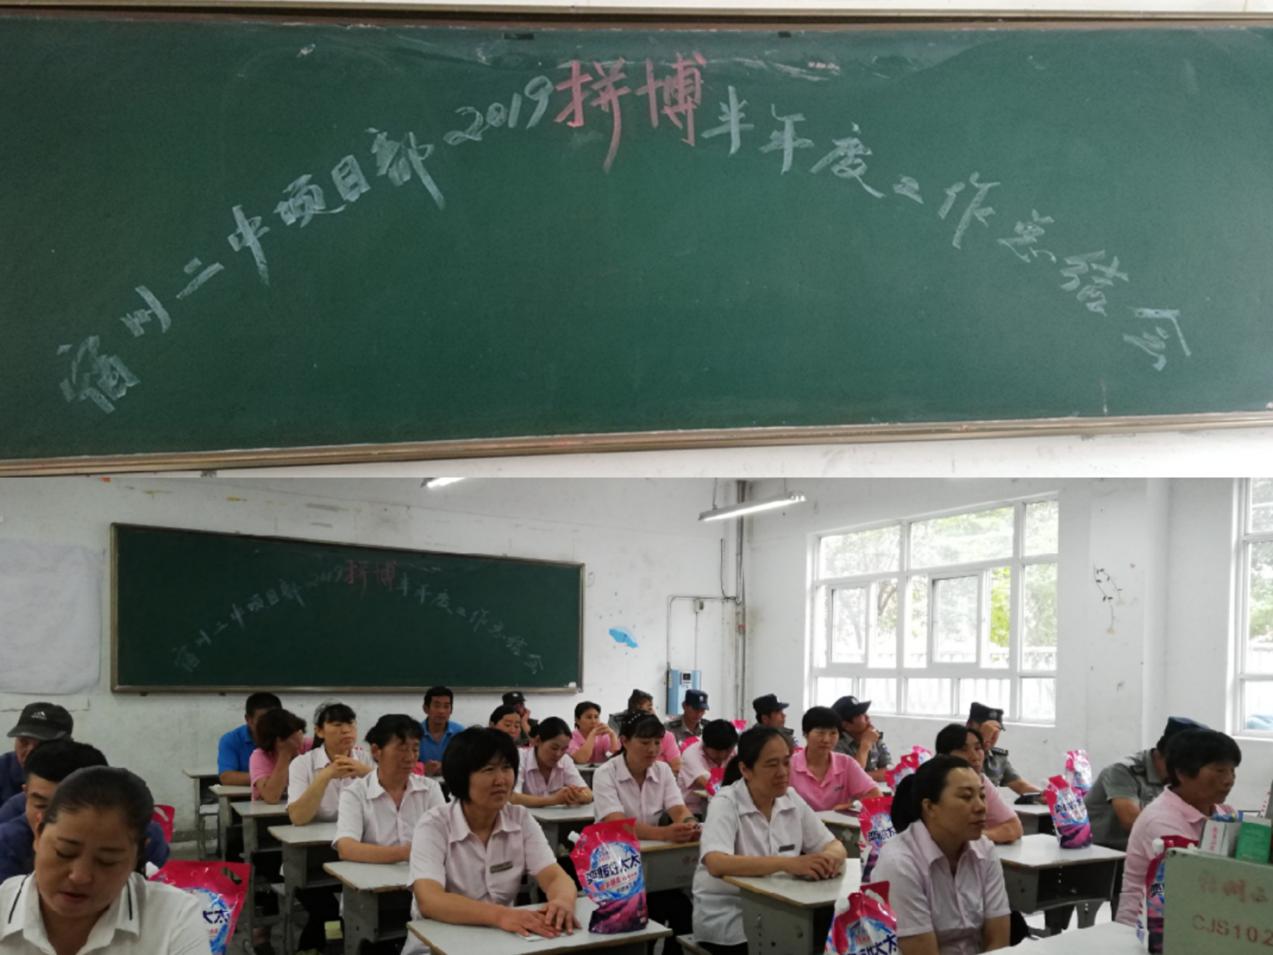 宿州二中项目部2019拼博半年度工作总结会
宿州二中项目部2019拼博半年度工作总结会
太太
CJS102